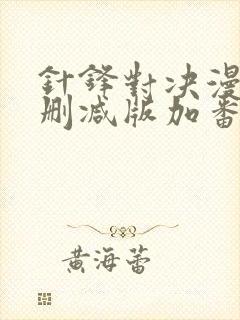 針鋒對决漫
刪减版加番
黄海蕾